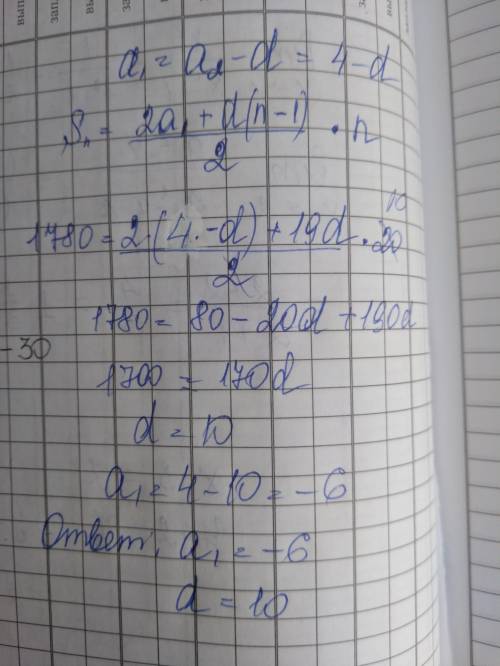 a₁ = a₂ - d = 4 - d
Sₙ = (2a₁ + d(n-1))/2 · n
1780 = (2(4 - d) + 19d)/2 · 20 10
1780 = 80 - 20d + 190d
- 30
1700 = 170d
d = 10
a₁ = 4 - 10 = -6
Ответ: a₁ = -6
d = 10